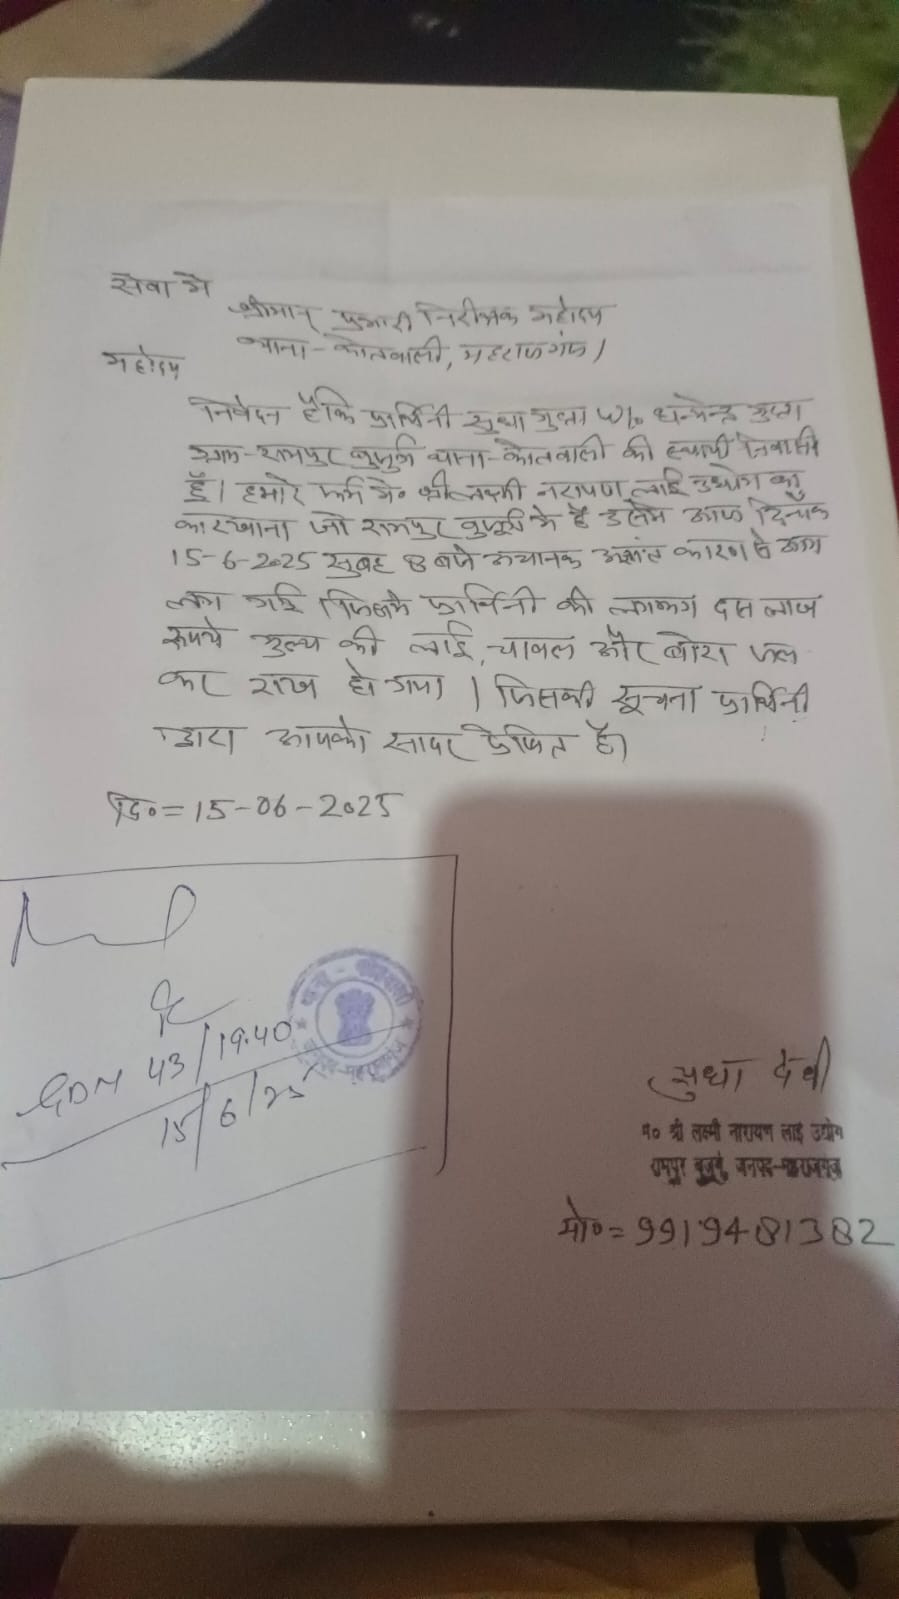 सेवा में
श्रीमान् प्रभारी निरीक्षक महोदय
थाना - कोतवाली, महराजगंज।
महोदय
निवेदन है कि प्रार्थिनी सुधा गुप्ता w/o धन्मेन्द्र गुप्ता
ग्राम - रामपुर बुजुर्ग थाना - कोतवाली की स्थायी निवासी
हूँ। हमारे फर्म मे० श्री लक्ष्मी नरायण लाई उद्योग का
कारखाना जो रामपुर बुजुर्ग में है उसमें आज दिनाँक
15-6-2025 सुबह 8 बजे अचानक अज्ञात कारण से आग
लग गई। जिसमें प्रार्थिनी की लगभग दस लाख
रूपये मुल्य की लाई, चावल और बोरा जल
कर राख हो गया। जिसकी सूचना प्रार्थिनी
द्वारा आपको सादर प्रेषित है।
दि० = 15-06-2025
GDN 43/19.40
15/6/25
सुधा देवी
मे० श्री लक्ष्मी नारायण लाई उद्योग
रामपुर बुजुर्ग जनपद-महराजगंज
मो० = 9919481382